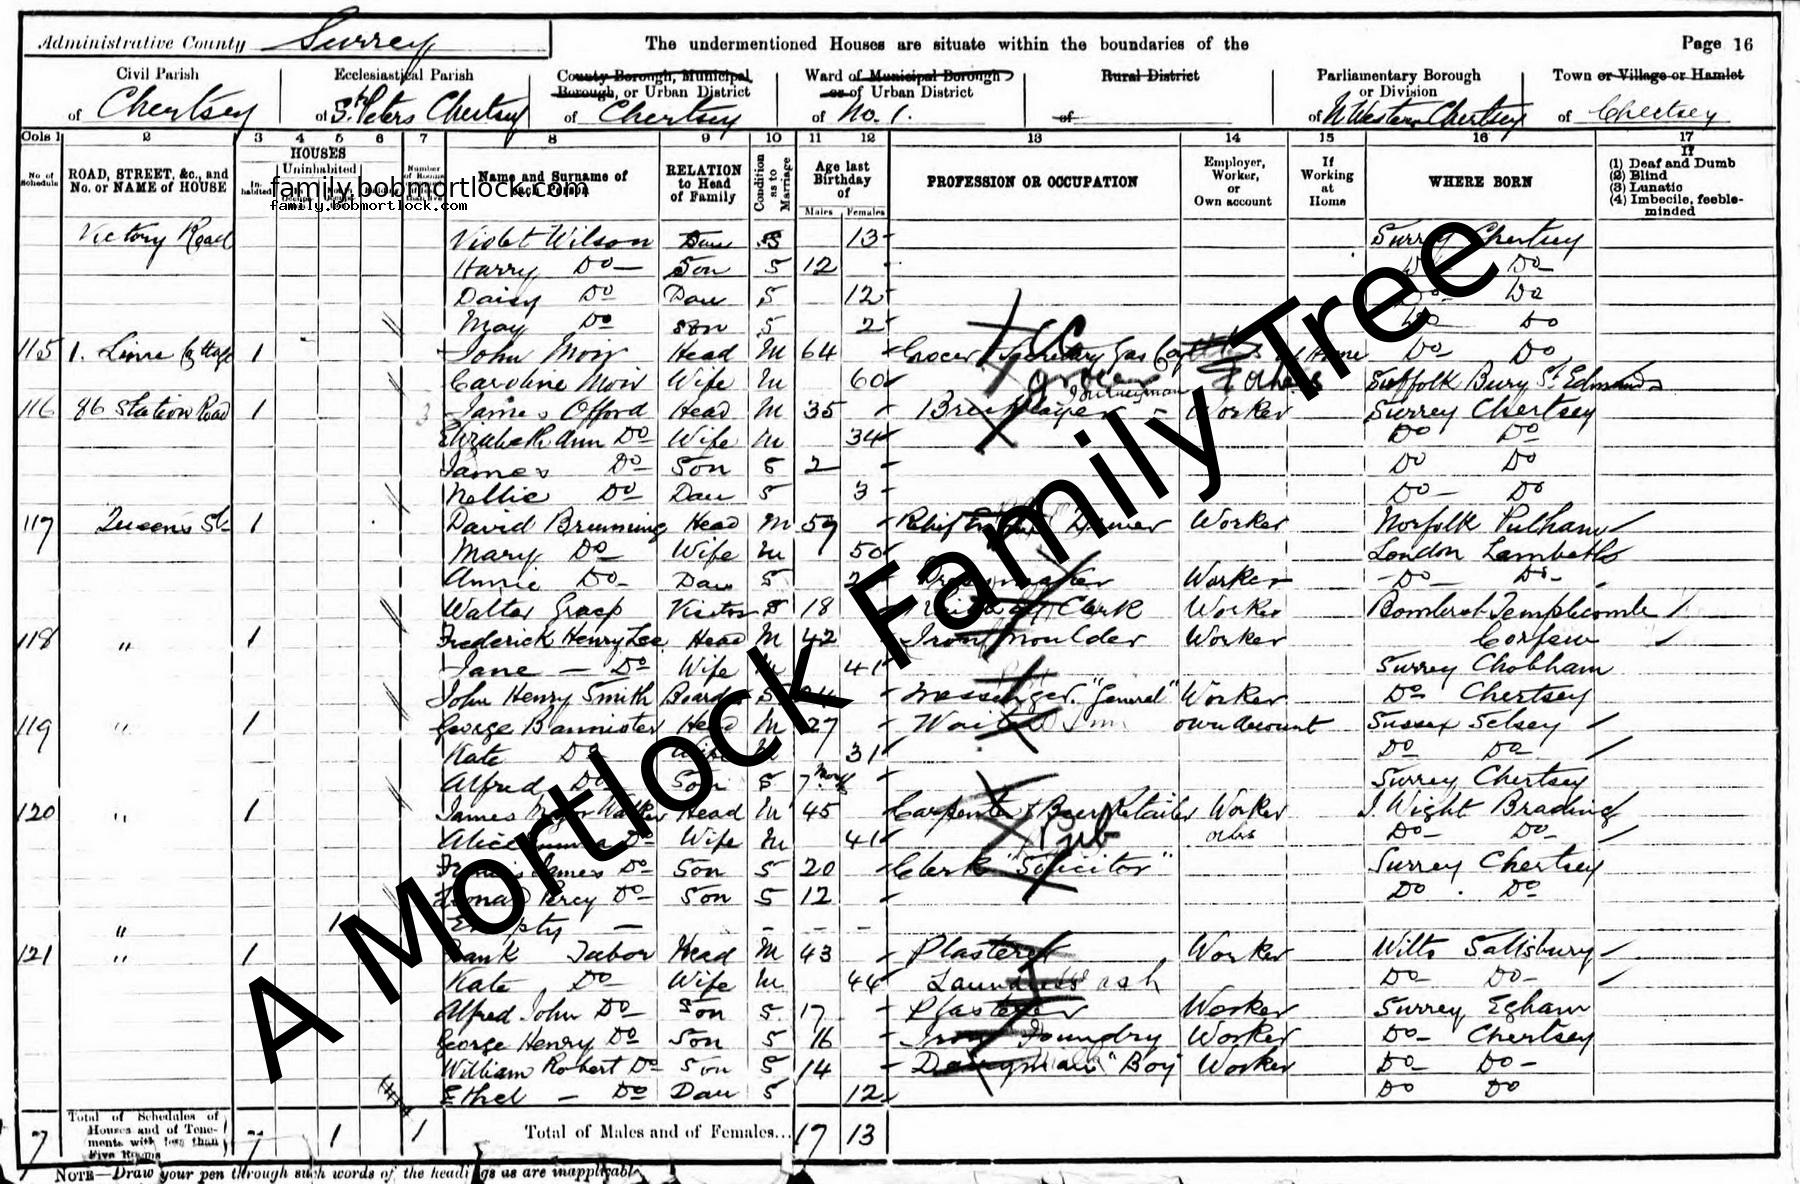 Administrative County Surrey The undermentioned Houses are situate within the boundaries of the Page 16
Civil Parish Ecclesiastical Parish County Borough, Municipal Borough, or Urban District Ward of Municipal Borough or of Urban District Rural District Parliamentary Borough or Division Town or Village or Hamlet
of Chertsey of St Peters Chertsey of Chertsey of No. 1. of of N Western Chertsey of Chertsey
Cols 1 2 3 4 5 6 7 8 9 10 11 12 13 14 15 16 17
No. of Schedule ROAD, STREET, &c., and No. or NAME of HOUSE HOUSES Inhabited Uninhabited Name and Surname of each Person RELATION to Head of Family Condition as to Marriage Age last Birthday of Males Females PROFESSION OR OCCUPATION Employer, Worker, or Own account If Working at Home WHERE BORN If (1) Deaf and Dumb (2) Blind (3) Lunatic (4) Imbecile, feeble-minded
family.bobmortlock.com
family.bobmortlock.com
Victory Road Violet Wilson Dau S 13 Surrey Chertsey
Harry Do Son S 12 Do Do
Daisy Do Dau S 12 Do Do
May Do Son S 2 Do Do
115 1. Lime Cottage 1 John Moir Head M 64 Grocer Secretary Gas At Home Do Do
Caroline Moir Wife M 60 Grocer Suffolk Bury St Edmunds
116 86 Station Road 1 3 James Offord Head M 35 Bricklayer Journeyman Worker Surrey Chertsey
Elizabeth Ann Do Wife M 34 Do Do
James Do Son S 2 Do Do
Nellie Do Dau S 3 Do Do
117 Queens St 1 David Brunning Head M 59 Driver Worker Norfolk Pulham
Mary Do Wife M 50 London Lambeth
Annie Do Dau S Dressmaker Worker Do Do
Walter Visitor S 18 Clerk Worker Somerset Templecombe
118 " 1 Frederick Henry Lee Head M 42 Iron Moulder Worker Corfew
Jane Do Wife M 41 Surrey Chobham
John Henry Smith Boarder S Messenger "General" Worker Do Chertsey
119 " 1 George Bannister Head M 27 Inn Own Account Sussex Selsey
Kate Do Wife M 31 Do Do
Alfred Do Son S 7 Mos Surrey Chertsey
120 " 1 James Walker Head M 45 Carpenter & Beer Retailer Worker I. Wight Brading
Alice Do Wife M 41 Pub Do Do
James Do Son S 20 Clerk "Solicitor" Surrey Chertsey
Percy Do Son S 12 Do Do
" 1 Empty – – – –
121 " 1 Frank Tabor Head M 43 Plasterer Worker Wilts Salisbury
Kate Do Wife M 44 Laundress Wash Do Do
Alfred John Do Son S 17 Plasterer Worker Surrey Egham
George Henry Do Son S 16 Iron Foundry Worker Do Chertsey
William Robert Do Son S 14 "Boy" Worker Do Do
Ethel – Do Dau S 12 Do Do
7 Total of Schedules of Houses and of Tenements with less than Five Rooms 7 1 1 Total of Males and of Females... 17 13
NOTE—Draw your pen through such words of the headings as are inapplicable.
A Mortlock Family Tree